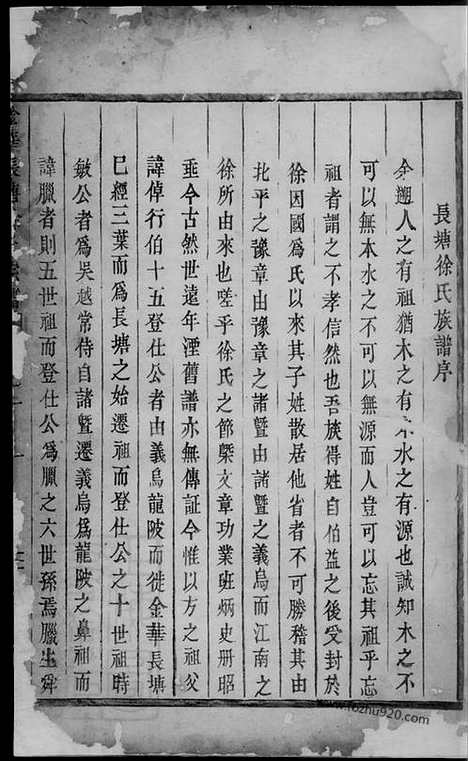 長塘徐氏族譜序
余邇人之有祖猶木之有本水之有源也誠知木之不
可以無本水之不可以無源而人豈可以忘其祖乎忘
祖者謂之不孝信然也吾族得姓自伯益之後受封於
徐因國為氏以來其子姓散居他省者不可勝稽其由
北平之豫章由豫章之諸暨由諸暨之義烏而江南之
徐所由來也嗟乎徐氏之節槩文章功業班炳史册昭
垂今古然世遠年湮舊譜亦無傳証今惟以方之祖公
諱倬行伯十五登仕公者由義烏龍陂而徙金華長塘
已經三葉而為長塘之始遷祖而登仕公之十世祖時
敏公者為吳越常侍自諸暨遷義烏為龍陂之鼻祖而
諱臘者則五世祖而登仕公為臘之六世孫焉臘生舜
www.fozhu920.com